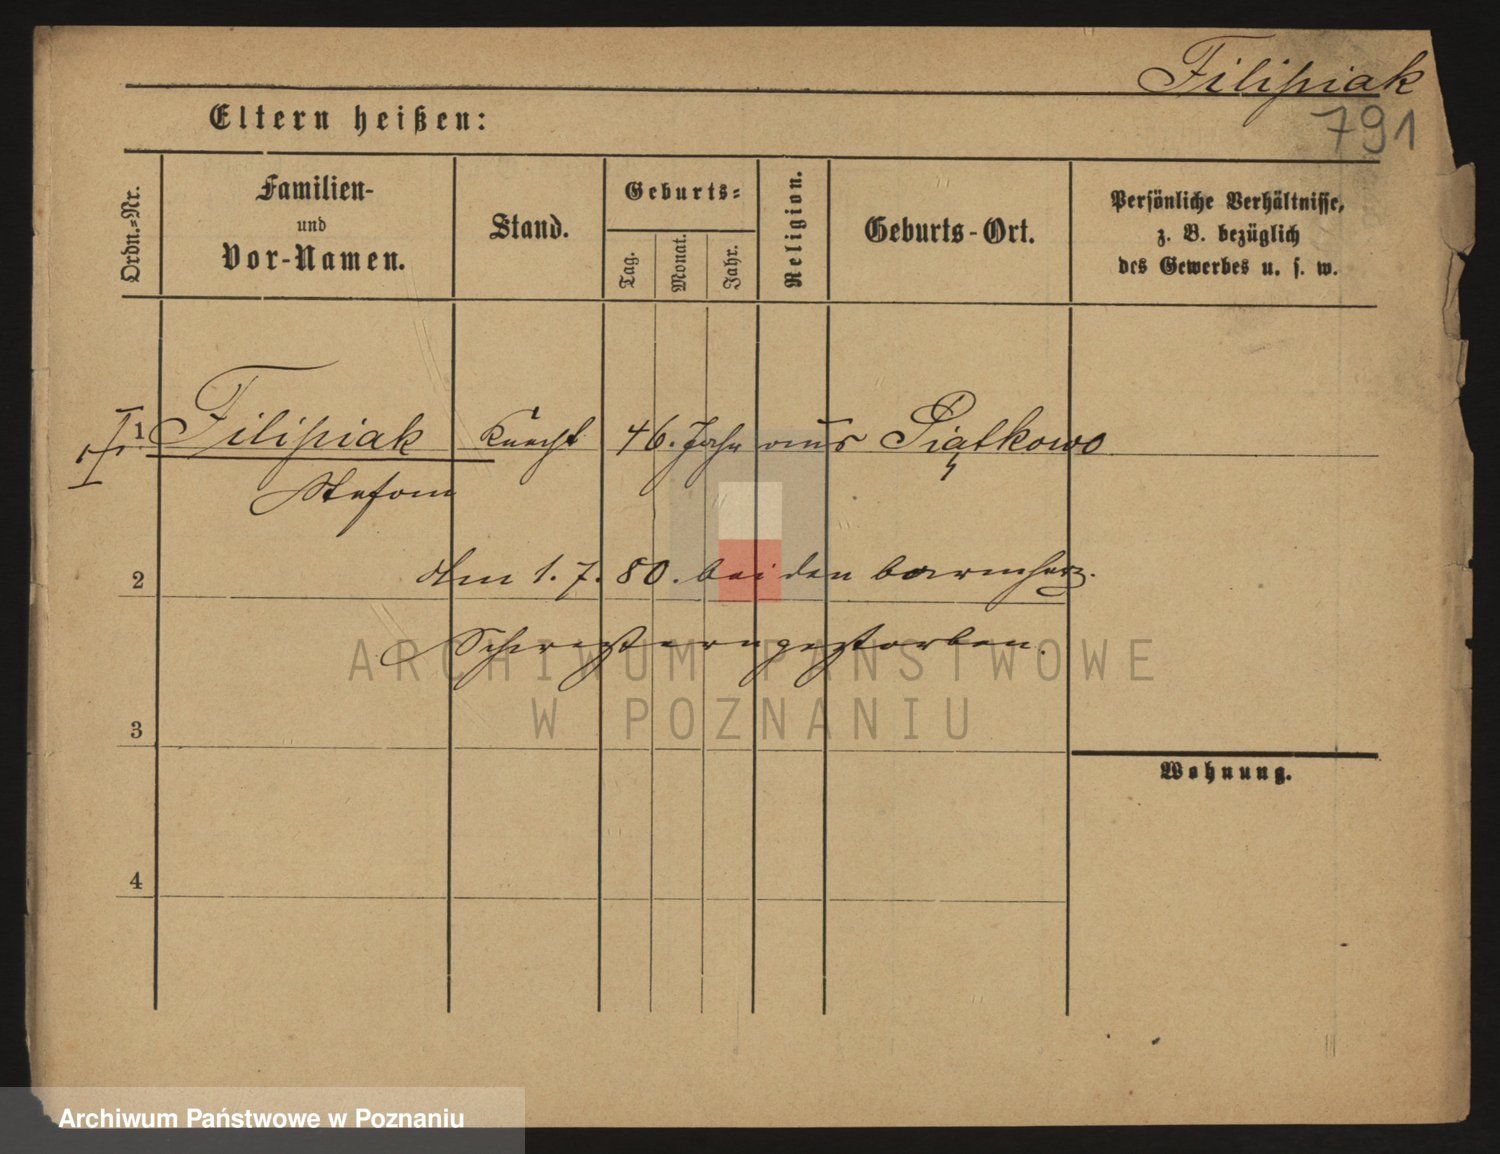 Filipiak
791
Eltern heißen:
Ordn.-Nr.
Familien-
und
Vor-Namen.
Stand.
Geburts-
Tag.
Monat.
Jahr.
Religion.
Geburts-Ort.
Persönliche Verhältnisse,
z. B. bezüglich
des Gewerbes u. s. w.
1 Filipiak Knecht 46. Jahr aus Piątkowo
Stefan
2 Am 1. 7. 80. bei den barmherz.
Schwestern gestorben.
ARCHIWUM PAŃSTWOWE
W POZNANIU
3
Wohnung.
4
Archiwum Państwowe w Poznaniu